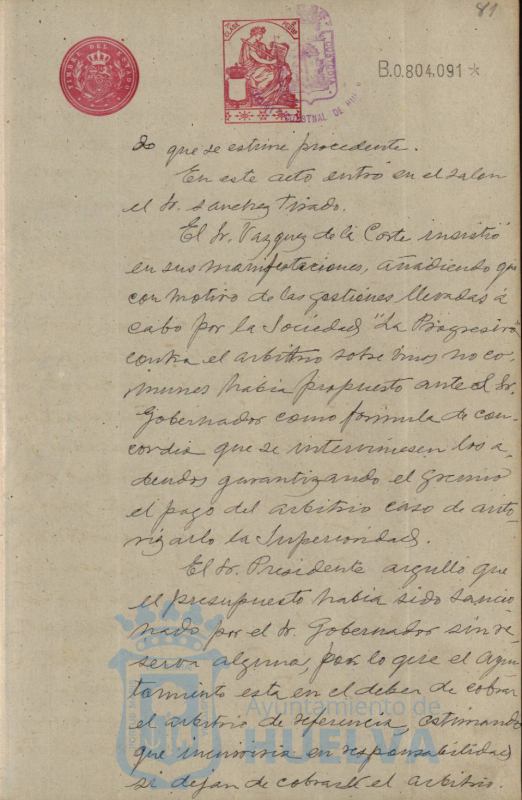 81
TIMBRE DEL ESTADO
CLASE
B.0.804.091 *
do que se estime procedente.
En este acto entró en el salon
el Sr. Sanchez Tirado.
El Sr. Vazquez de la Corte insistió
en sus manifestaciones, añadiendo que
con motivo de las gestiones llevadas á
cabo por la Sociedad "La Progresiva
contra el arbitrio sobre vinos no co-
munes habia propuesto ante el Sr.
Gobernador como fórmula de con-
cordia que se interviniesen los a-
deudos garantizando el Gremio
el pago del arbitrio caso de auto-
rizarlo la Superioridad.
El Sr. Presidente arguyó que
el presupuesto habia sido sancio
nado por el Sr. Gobernador sin re
serva alguna, por lo que el Ayun
tamiento está en el deber de cobrar
el arbitrio de referencia, estimando
que incurriria en responsabilidad
si dejan de cobrarse el arbitrio.
Ayuntamiento de
HUELVA